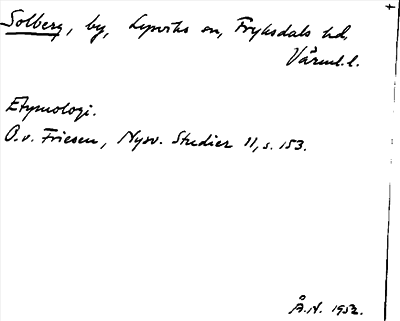 Solberg, by, Lysviks sn, Fryksdals hd,
Värml. l.
Etymologi.
O. v. Friesen, Nysv. Studier 11, s. 153.
Å. N. 1952.